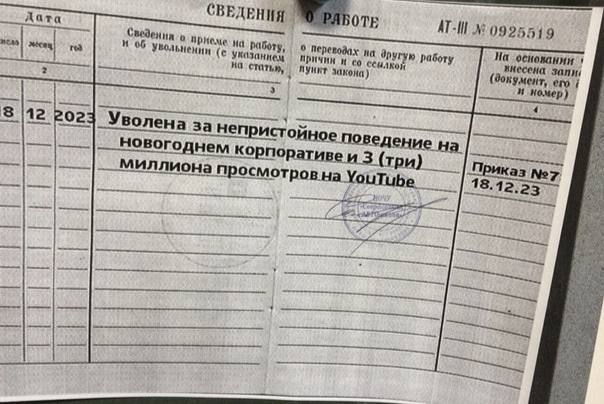 СВЕДЕНИЯ О РАБОТЕ
АТ-III № 0925519
Дата
месяц год
Сведения о приеме на работу,
и об увольнении (с указанием
на статью,
о переводах на другую работу
причин и со ссылкой
пункт закона)
На основании
внесена запи
(документ, его
и номер)
2 3 4
8 12 2023
Уволена за непристойное поведение на
новогоднем корпоративе и 3 (три)
миллиона просмотров на YouTube
Приказ №7
18.12.23